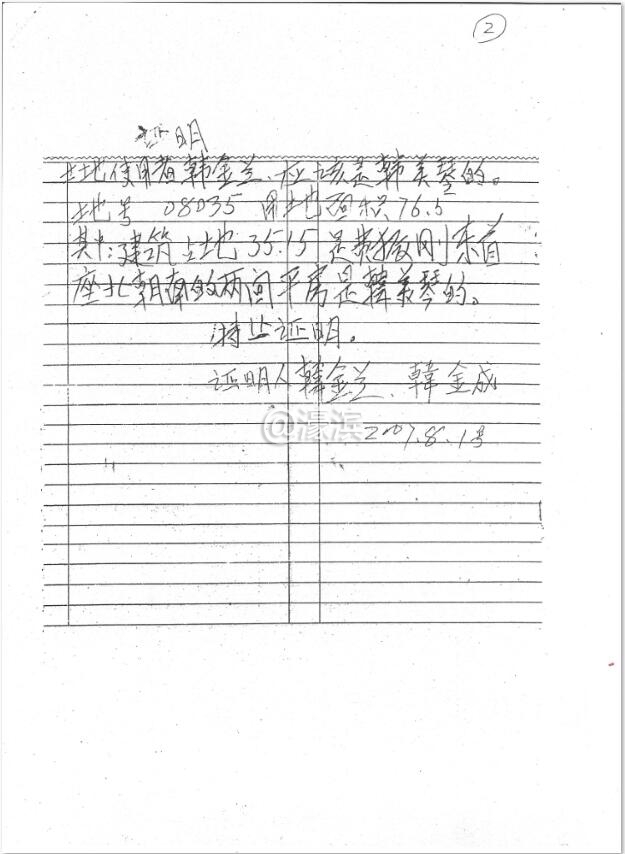 ②
证明
土地使用者韩金兰、应该是韩美琴的。
地号 08035 用地面积76.5
其中:建筑占地35.15是 刚东首
座北朝南的两间平房是韩美琴的。
特此证明。
证明人韩金兰、韩金成
@濠滨
2007.8.1号